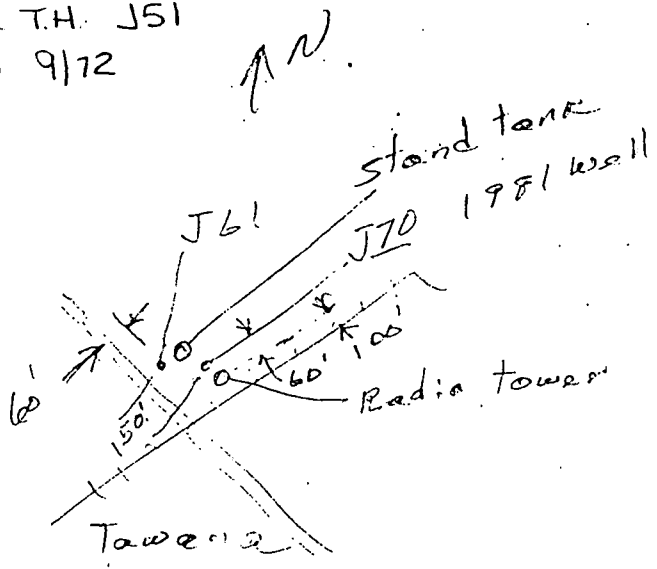 T.H. J51
9/72
N
Stand tank
J61
J70 1981 well
60'
60' 100'
150'
Radio tower